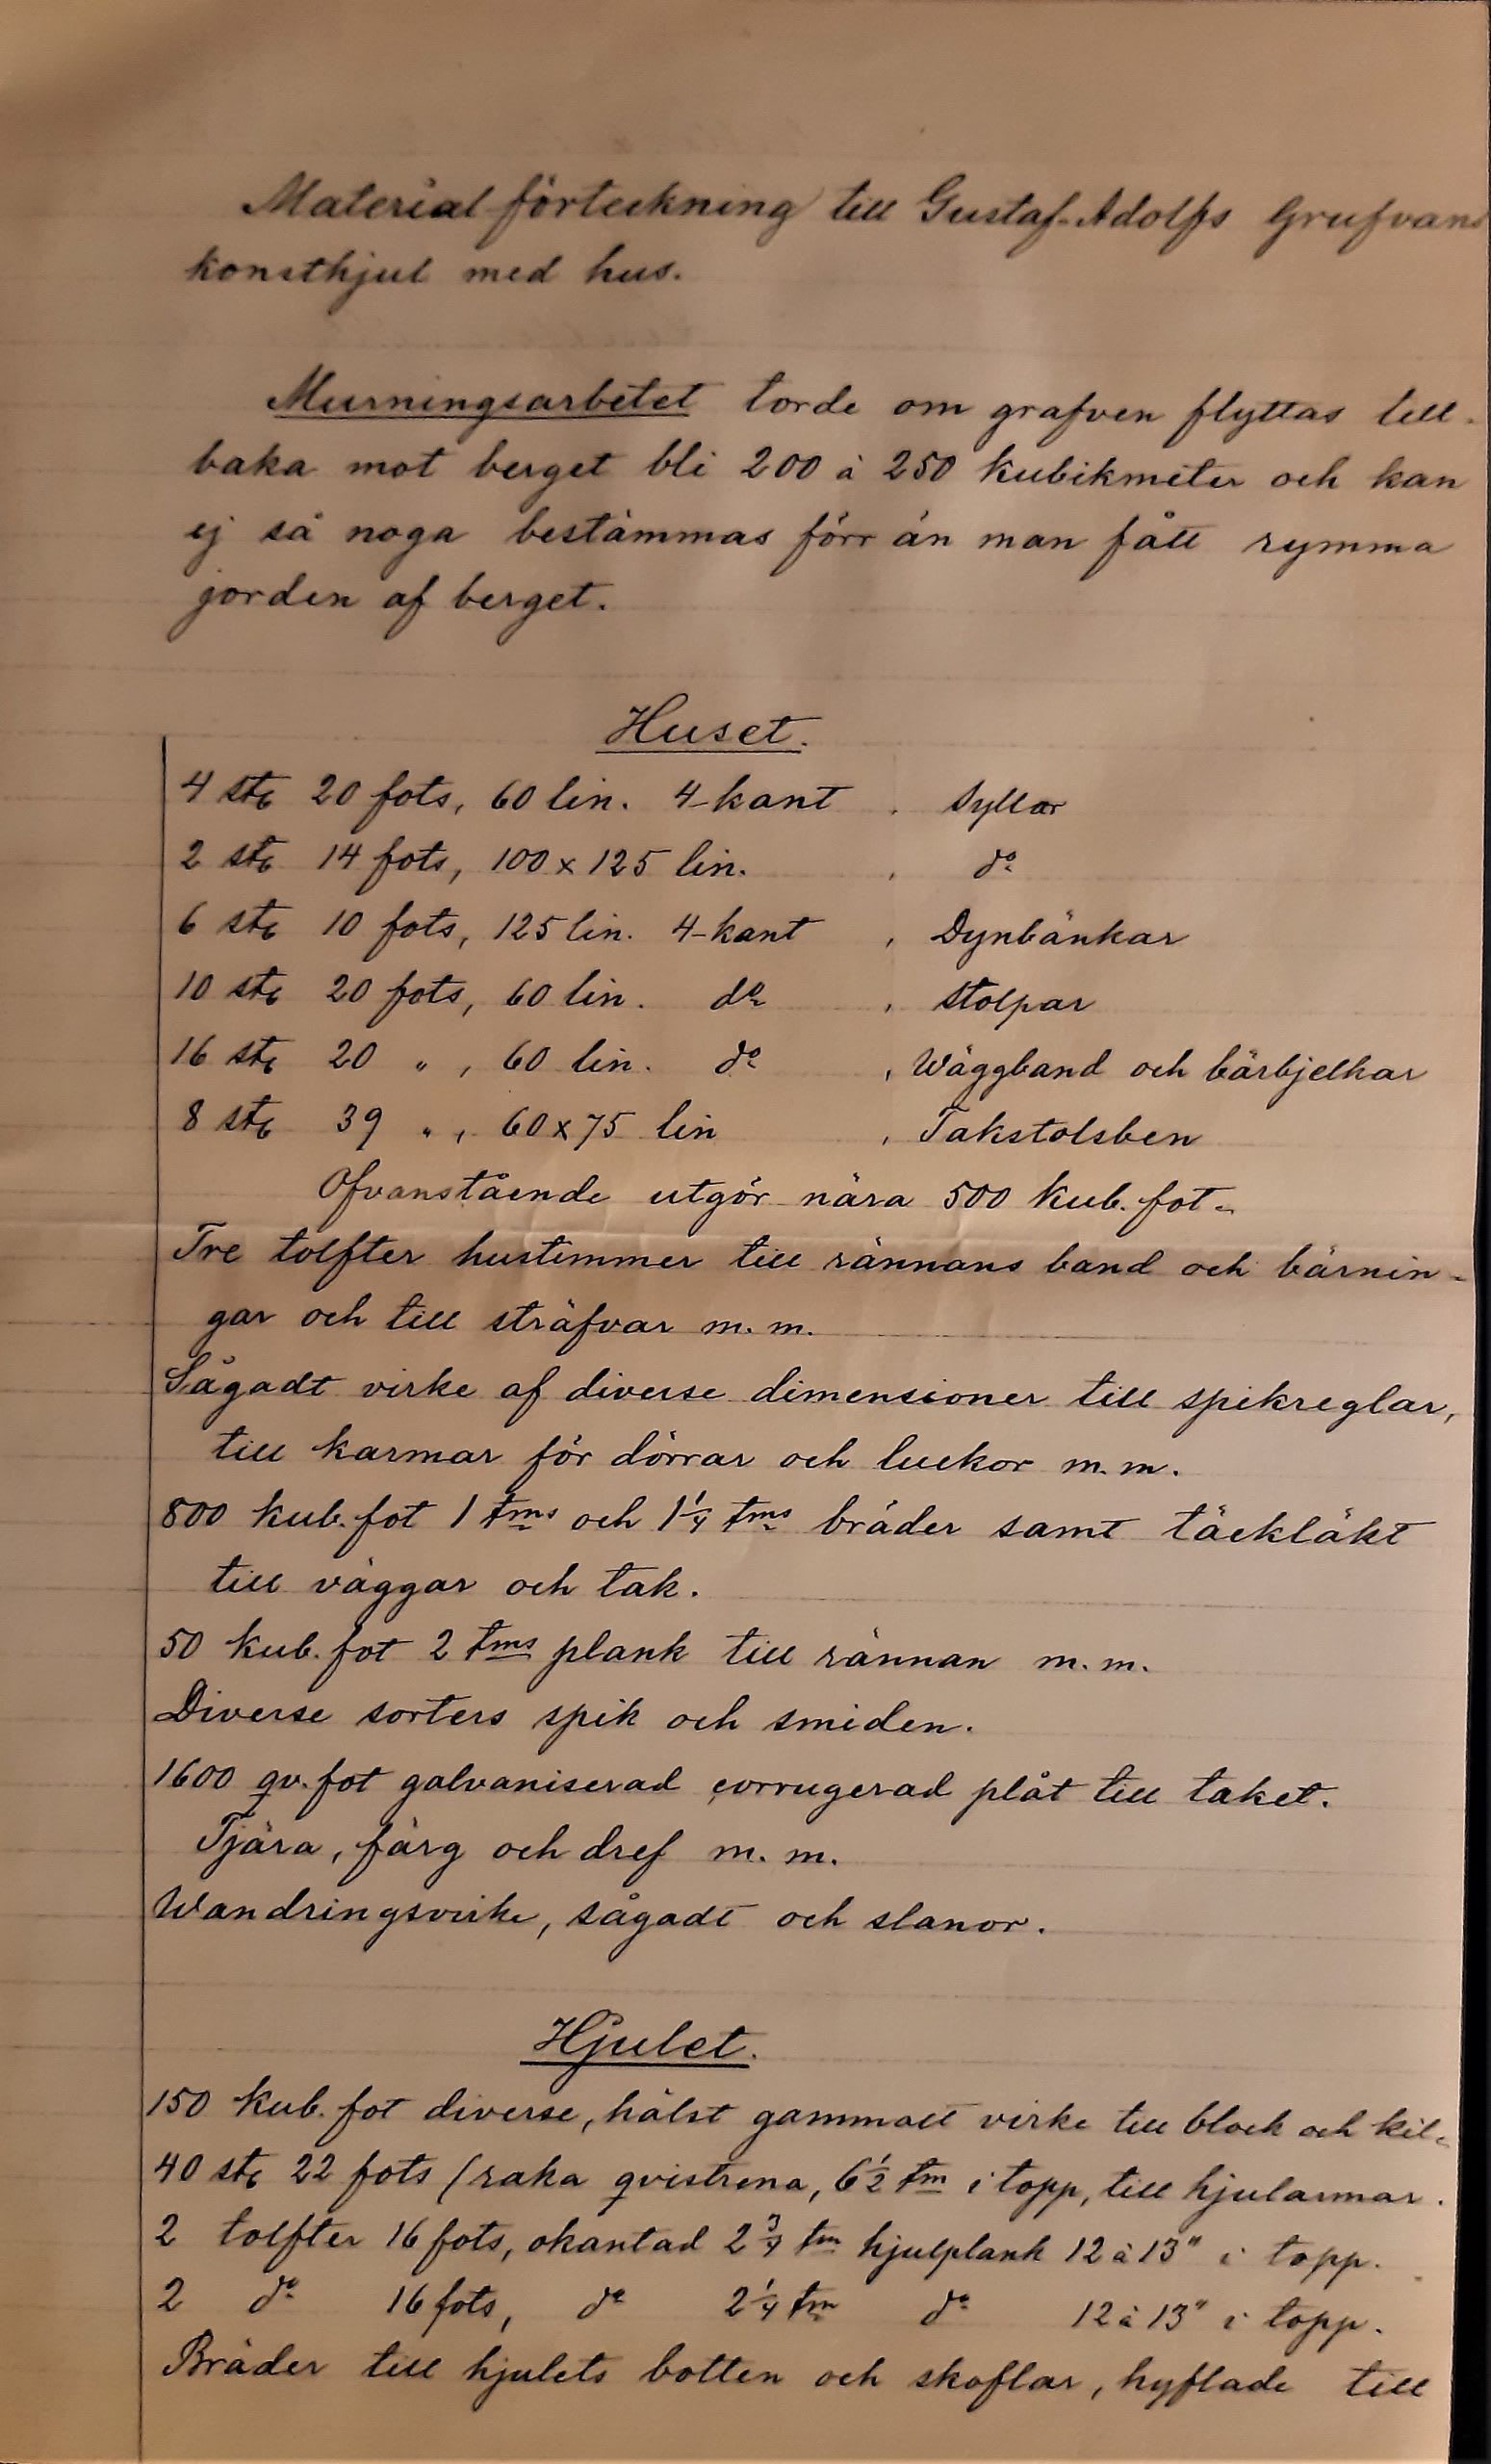 Material förteckning till Gustaf-Adolfs Grufvans
konsthjul med hus.
Murningsarbetet torde om grafven flyttas till-
baka mot berget bli 200 à 250 kubikmeter och kan
ej så noga bestämmas förr än man fått rymma
jorden af berget.
Huset.
4 stc 20 fots, 60 lin. 4-kant , Syllar
2 stc 14 fots, 100 x 125 lin. , do
6 stc 10 fots, 125 lin. 4-kant , Dynbänkar
10 stc 20 fots, 60 lin. do , Stolpar
16 stc 20 " , 60 lin. do , Wäggband och bärbjelkar
8 stc 39 " , 60 x 75 lin , Takstolsben
Ofvanstående utgör nära 500 kub. fot.
Tre tolfter hustimmer till rännans band och bärnin-
gar och till sträfvar m. m.
Sågadt virke af diverse dimensioner till spikreglar,
till karmar för dörrar och luckor m. m.
800 kub. fot 1 tms och 1 1/4 tms bräder samt täckläkt
till väggar och tak.
50 kub. fot 2 tms plank till rännan m. m.
Diverse sorters spik och smiden.
1600 qv. fot galvaniserad corrugerad plåt till taket.
Tjära, färg och dref m. m.
Wandringsvirke, sågadt och slanor.
Hjulet.
150 kub. fot diverse, hälst gammalt virke till block och kil.
40 stc 22 fots (raka qvistrena, 6 1/2 tm i topp, till hjularmar.
2 tolfter 16 fots, okantad 2 3/4 tm hjulplank 12 à 13" i topp.
2 do 16 fots, do 2 1/4 tm do 12 à 13" i topp.
Bräder till hjulets botten och skoflar, hyflade till